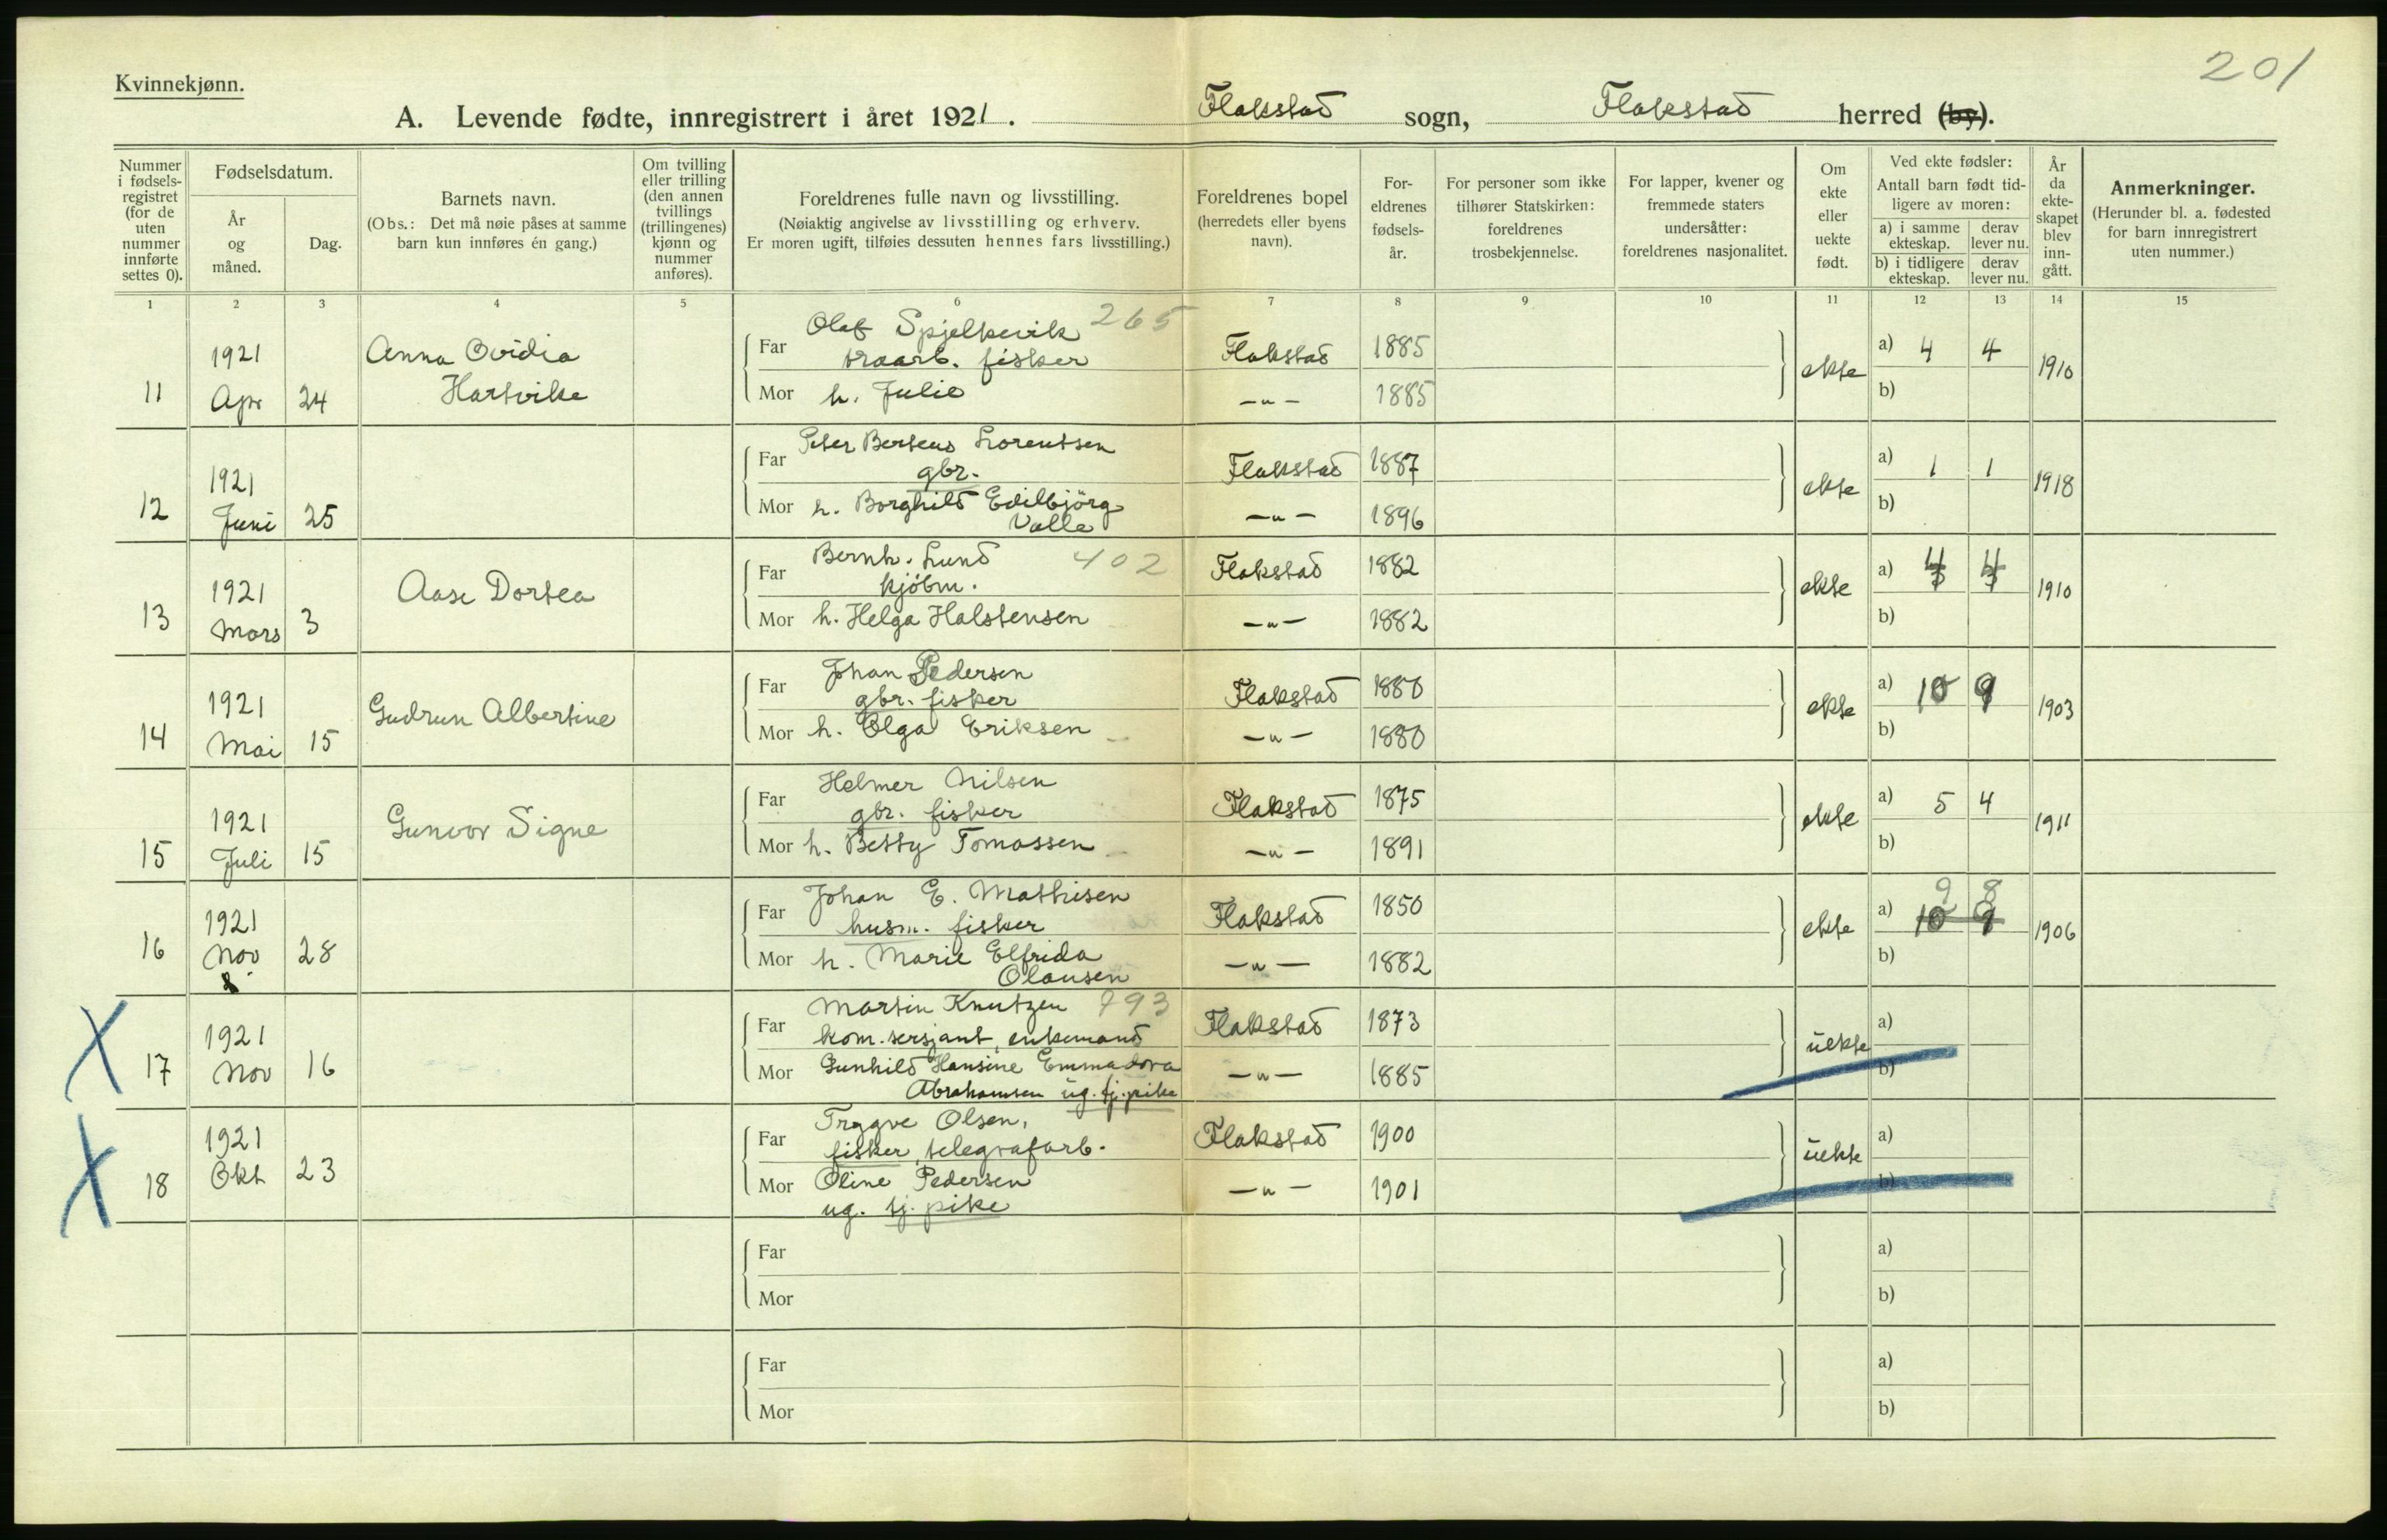 201
Kvinnekjønn.
A. Levende fødte, innregistrert i året 1921. Flakstad sogn, Flakstad herred (by).
Nummer i fødsels-registret (for de uten nummer innførte settes 0).
Fødselsdatum.
År og måned.
Dag.
Barnets navn.
(Obs.: Det må nøie påses at samme barn kun innføres én gang.)
Om tvilling eller trilling (den annen tvillings (trillingenes) kjønn og nummer anføres).
Foreldrenes fulle navn og livsstilling.
(Nøiaktig angivelse av livsstilling og erhverv.
Er moren ugift, tilføies dessuten hennes fars livsstilling.)
Foreldrenes bopel
(herredets eller byens navn).
For-eldrenes fødsels-år.
For personer som ikke tilhører Statskirken: foreldrenes trosbekjennelse.
For lapper, kvener og fremmede staters undersåtter: foreldrenes nasjonalitet.
Om ekte eller uekte født.
Ved ekte fødsler:
Antall barn født tid-ligere av moren:
a) i samme ekteskap.
derav lever nu.
b) i tidligere ekteskap.
derav lever nu.
År da ekte-skapet blev inn-gått.
Anmerkninger.
(Herunder bl. a. fødested for barn innregistrert uten nummer.)
1 2 3 4 5 6 7 8 9 10 11 12 13 14 15
Olaf Spjelkevik 265
1921 Anna Ovidia Far fisker Flakstad 1885 ekte a) 4 4 1910
11 Apr 24 Hartvikke Mor h. Julie —"— 1885 b)
Peter Berteus Lorentsen
1921 Far gbr. Flakstad 1887 ekte a) 1 1 1918
12 Juni 25 Mor h. Borghild Edilbjörg —"— 1896 b)
Valle
Bernh. Lund 402
1921 Aase Dortea Far kjöbm. Flakstad 1882 ekte a) 4 4 1910
13 Mars 3 Mor h. Helga Halstensen —"— 1882 b)
Johan Pedersen
1921 Gudrun Albertine Far gbr. fisker Flakstad 1880 ekte a) 10 9 1903
14 Mai 15 Mor h. Olga Eriksen —"— 1880 b)
Helmer Nilsen
1921 Gunvor Signe Far gbr. fisker Flakstad 1875 ekte a) 5 4 1911
15 Juli 15 Mor h. Betty Tomassen —"— 1891 b)
Johan E. Mathisen 9 8
1921 Far husm. fisker Flakstad 1850 ekte a) 10 9 1906
16 Nov 28 Mor h. Marie Elfrida —"— 1882 b)
Olausen
Martin Knutzen 793
X 1921 Far kom. sersjant, enkemand Flakstad 1873 uekte a)
17 Nov 16 Mor Gunhild Hansine Emmadora —"— 1885 b)
Abrahamsen ug. tj. pike
Trygve Olsen,
X 1921 Far fisker, telegrafarb. Flakstad 1900 uekte a)
18 Okt 23 Mor Oline Pedersen —"— 1901 b)
ug. tj. pike
Far a)
Mor b)
Far a)
Mor b)